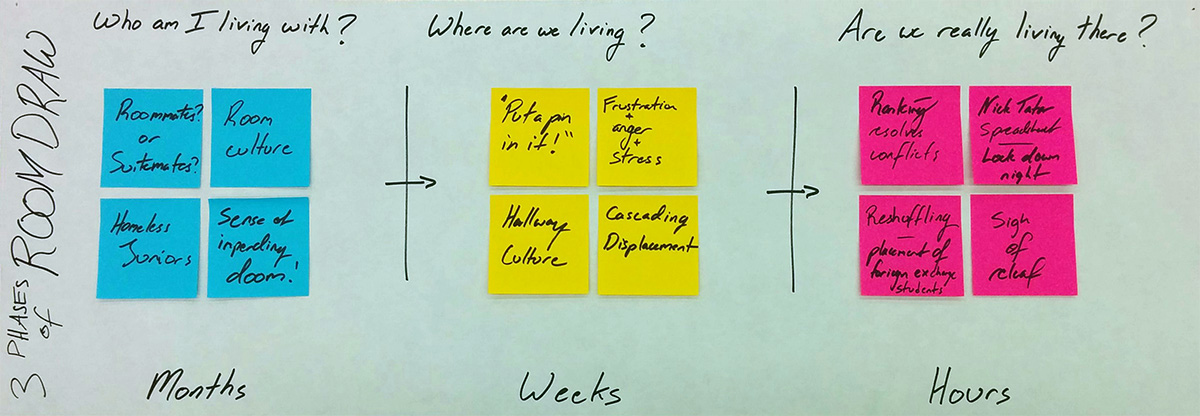 3 PHASES of ROOM DRAW
Who am I living with?
Roommates?
or
Suitemates?
Room
culture
Homeless
Juniors
Sense of
impending
doom!
Months
Where are we living?
"Put a pin
in it!"
Frustration
+
anger
+
stress
Hallway
Culture
Cascading
Displacement
Weeks
Are we really living there?
Ranking
resolves
conflicts
Nick Tatar
Spreadsheet
Lock down
night
Reshuffling
placement of
foreign exchange
students
Sigh
of
releaf
Hours